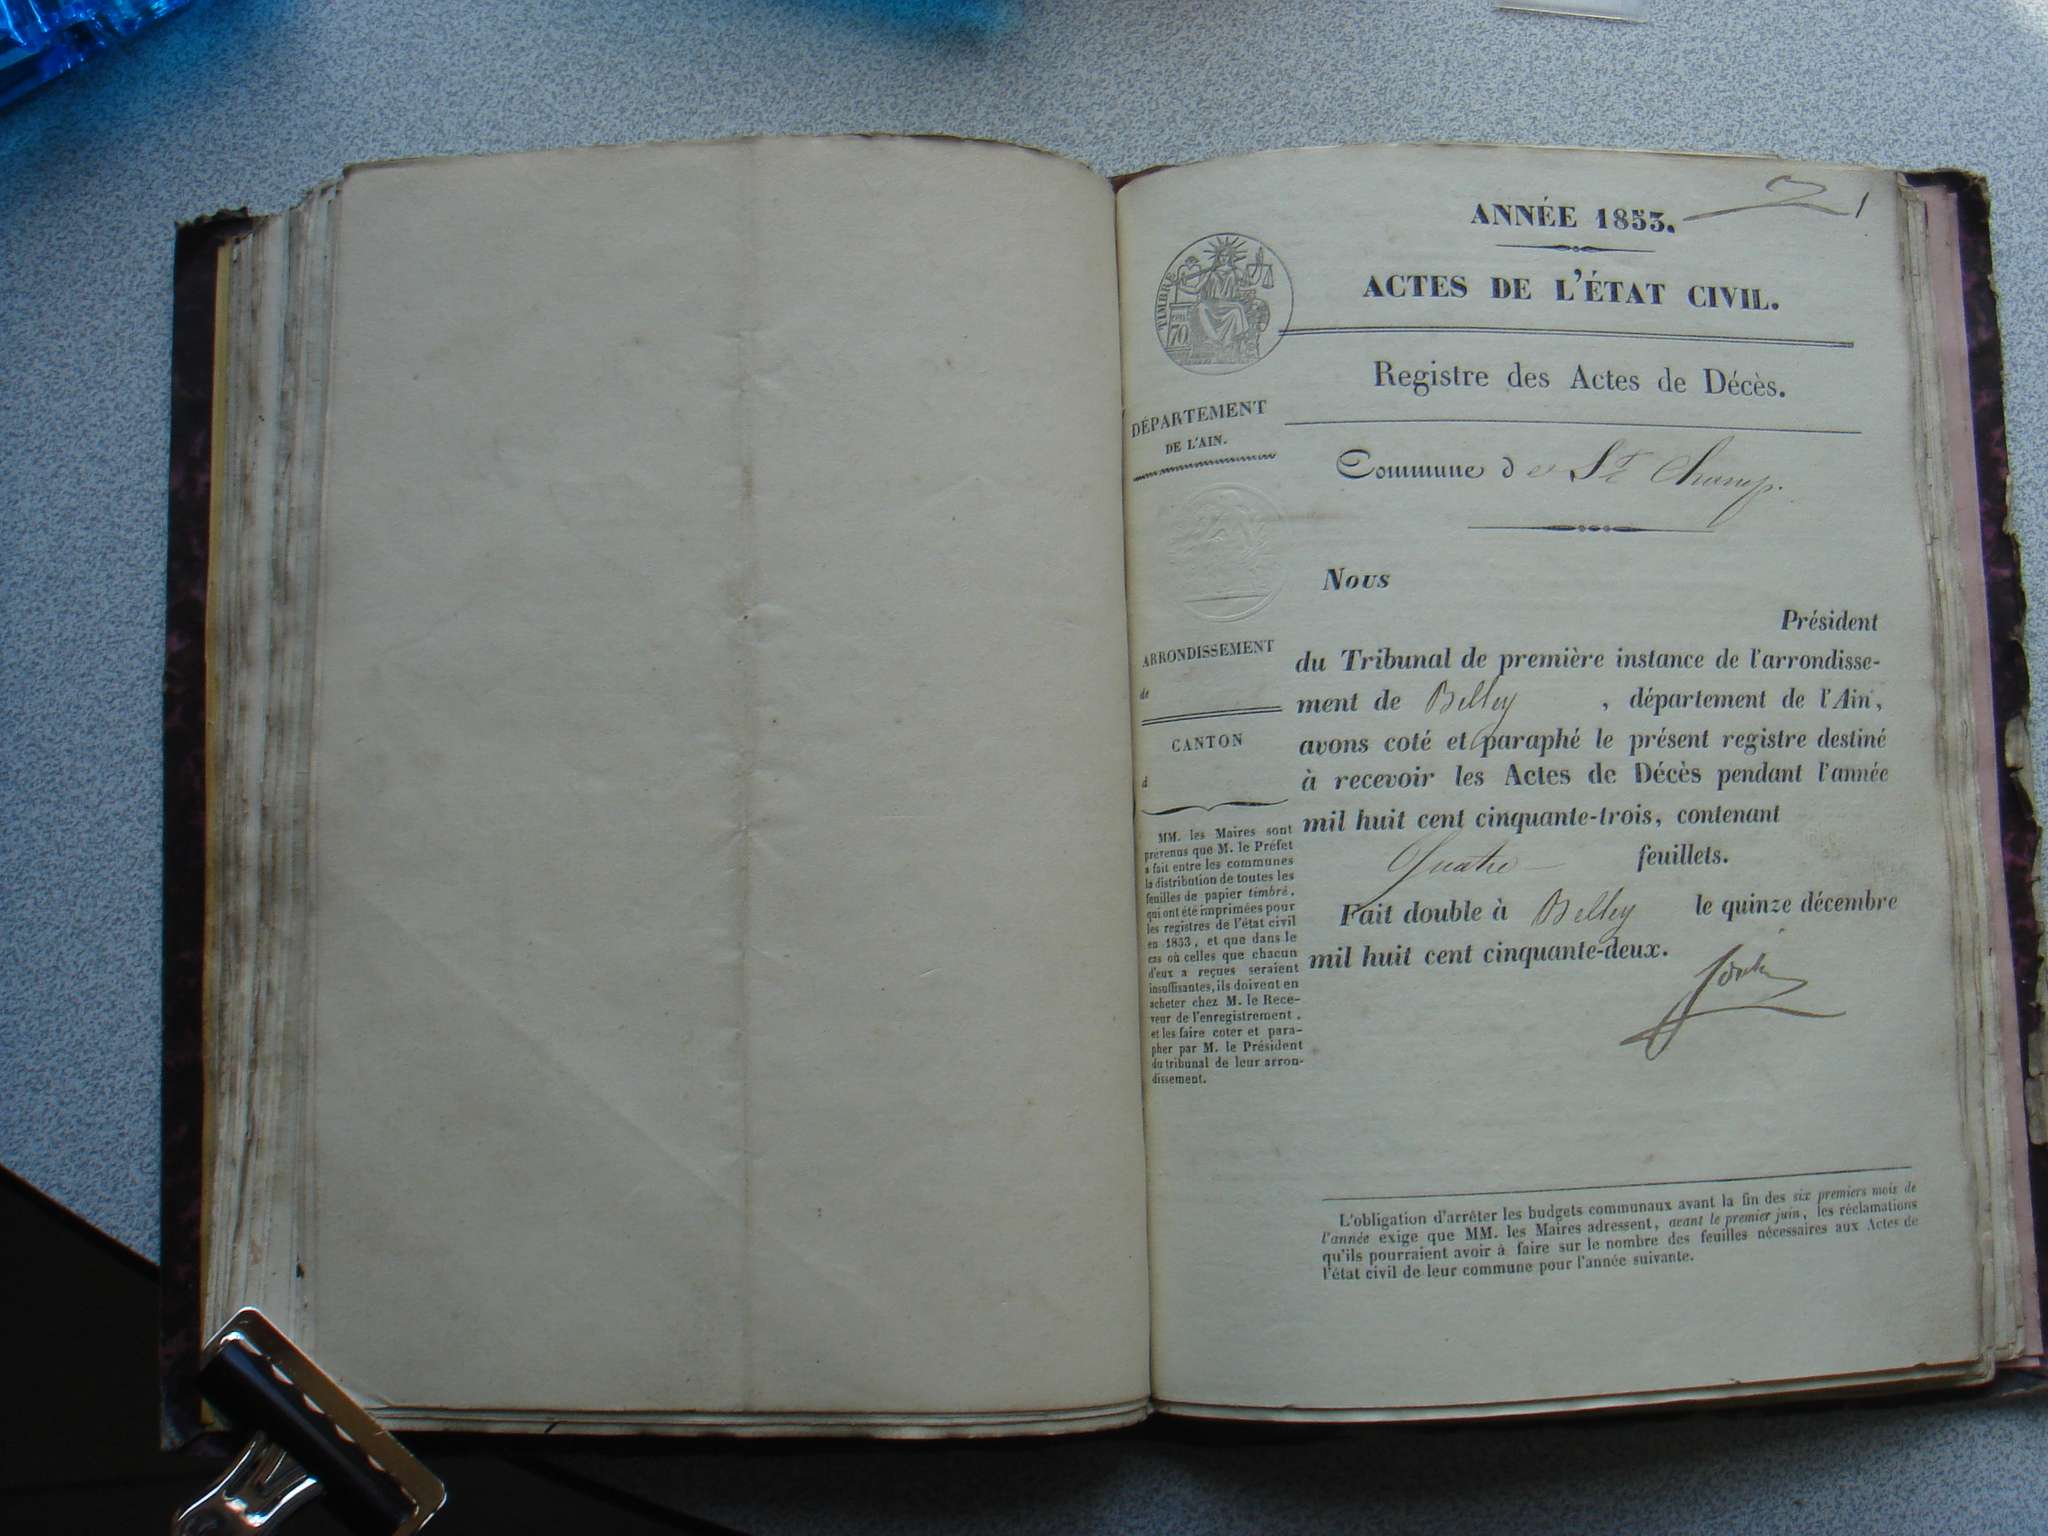 1
ANNÉE 1853.
ACTES DE L'ÉTAT CIVIL.
TIMBRE
70
Registre des Actes de Décès.
DÉPARTEMENT
DE L'AIN.
Commune de St Champ.
Nous
Président
du Tribunal de première instance de l'arrondisse-
ment de Belley, département de l'Ain,
avons coté et paraphé le présent registre destiné
à recevoir les Actes de Décès pendant l'année
mil huit cent cinquante-trois, contenant
Quatre feuillets.
Fait double à Belley le quinze décembre
mil huit cent cinquante-deux.
ARRONDISSEMENT
de
CANTON
d
MM. les Maires sont
prévenus que M. le Préfet
a fait entre les communes
la distribution de toutes les
feuilles de papier timbré,
qui ont été imprimées pour
les registres de l'état civil
en 1853, et que dans le
cas où celles que chacun
d'eux a reçues seraient
insuffisantes, ils doivent en
acheter chez M. le Rece-
veur de l'enregistrement,
et les faire coter et para-
pher par M. le Président
du tribunal de leur arron-
dissement.
L'obligation d'arrêter les budgets communaux avant la fin des six premiers mois de
l'année exige que MM. les Maires adressent, avant le premier juin, les réclamations
qu'ils pourraient avoir à faire sur le nombre des feuilles nécessaires aux Actes de
l'état civil de leur commune pour l'année suivante.